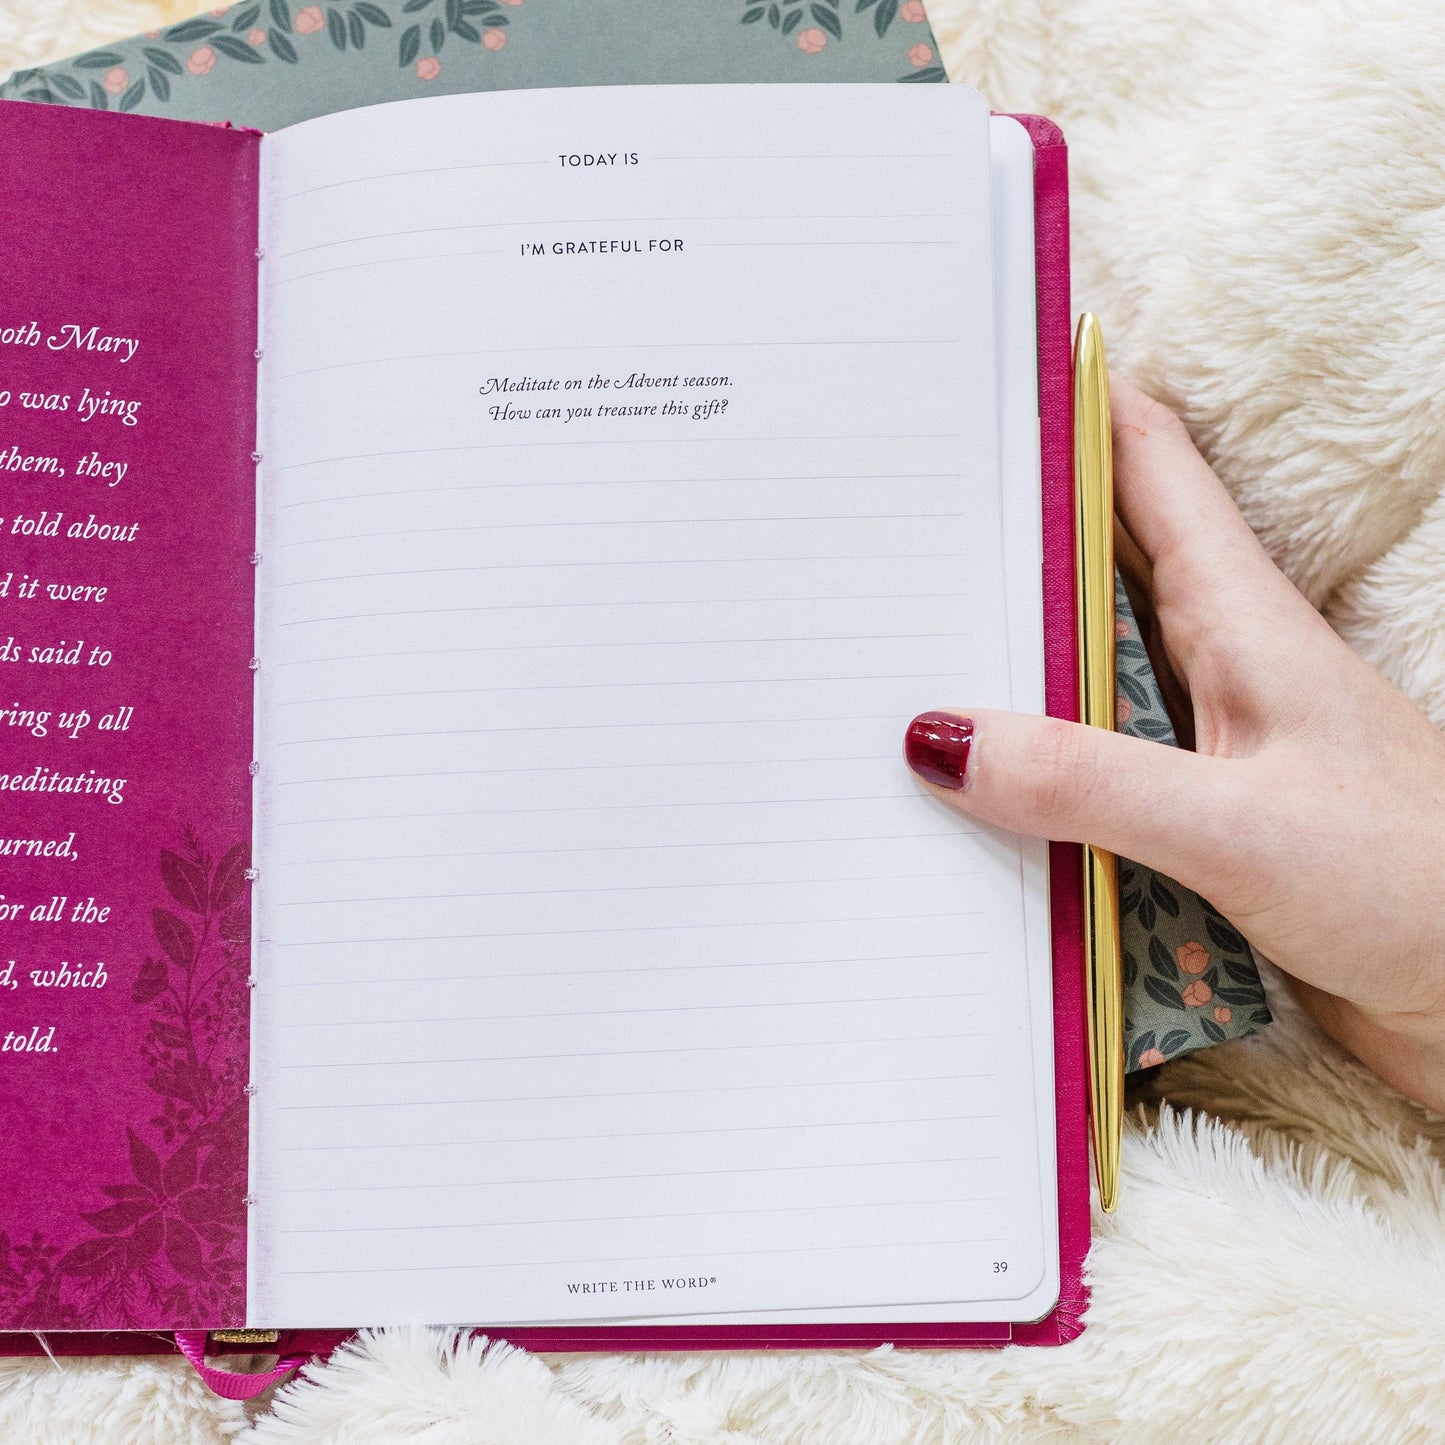 oth Mary
was lying
them, they
told about
it were
said to
ring up all
meditating
urned,
for all the
which
told.
TODAY IS
I'M GRATEFUL FOR
Meditate on the Advent season.
How can you treasure this gift?
WRITE THE WORD®
39